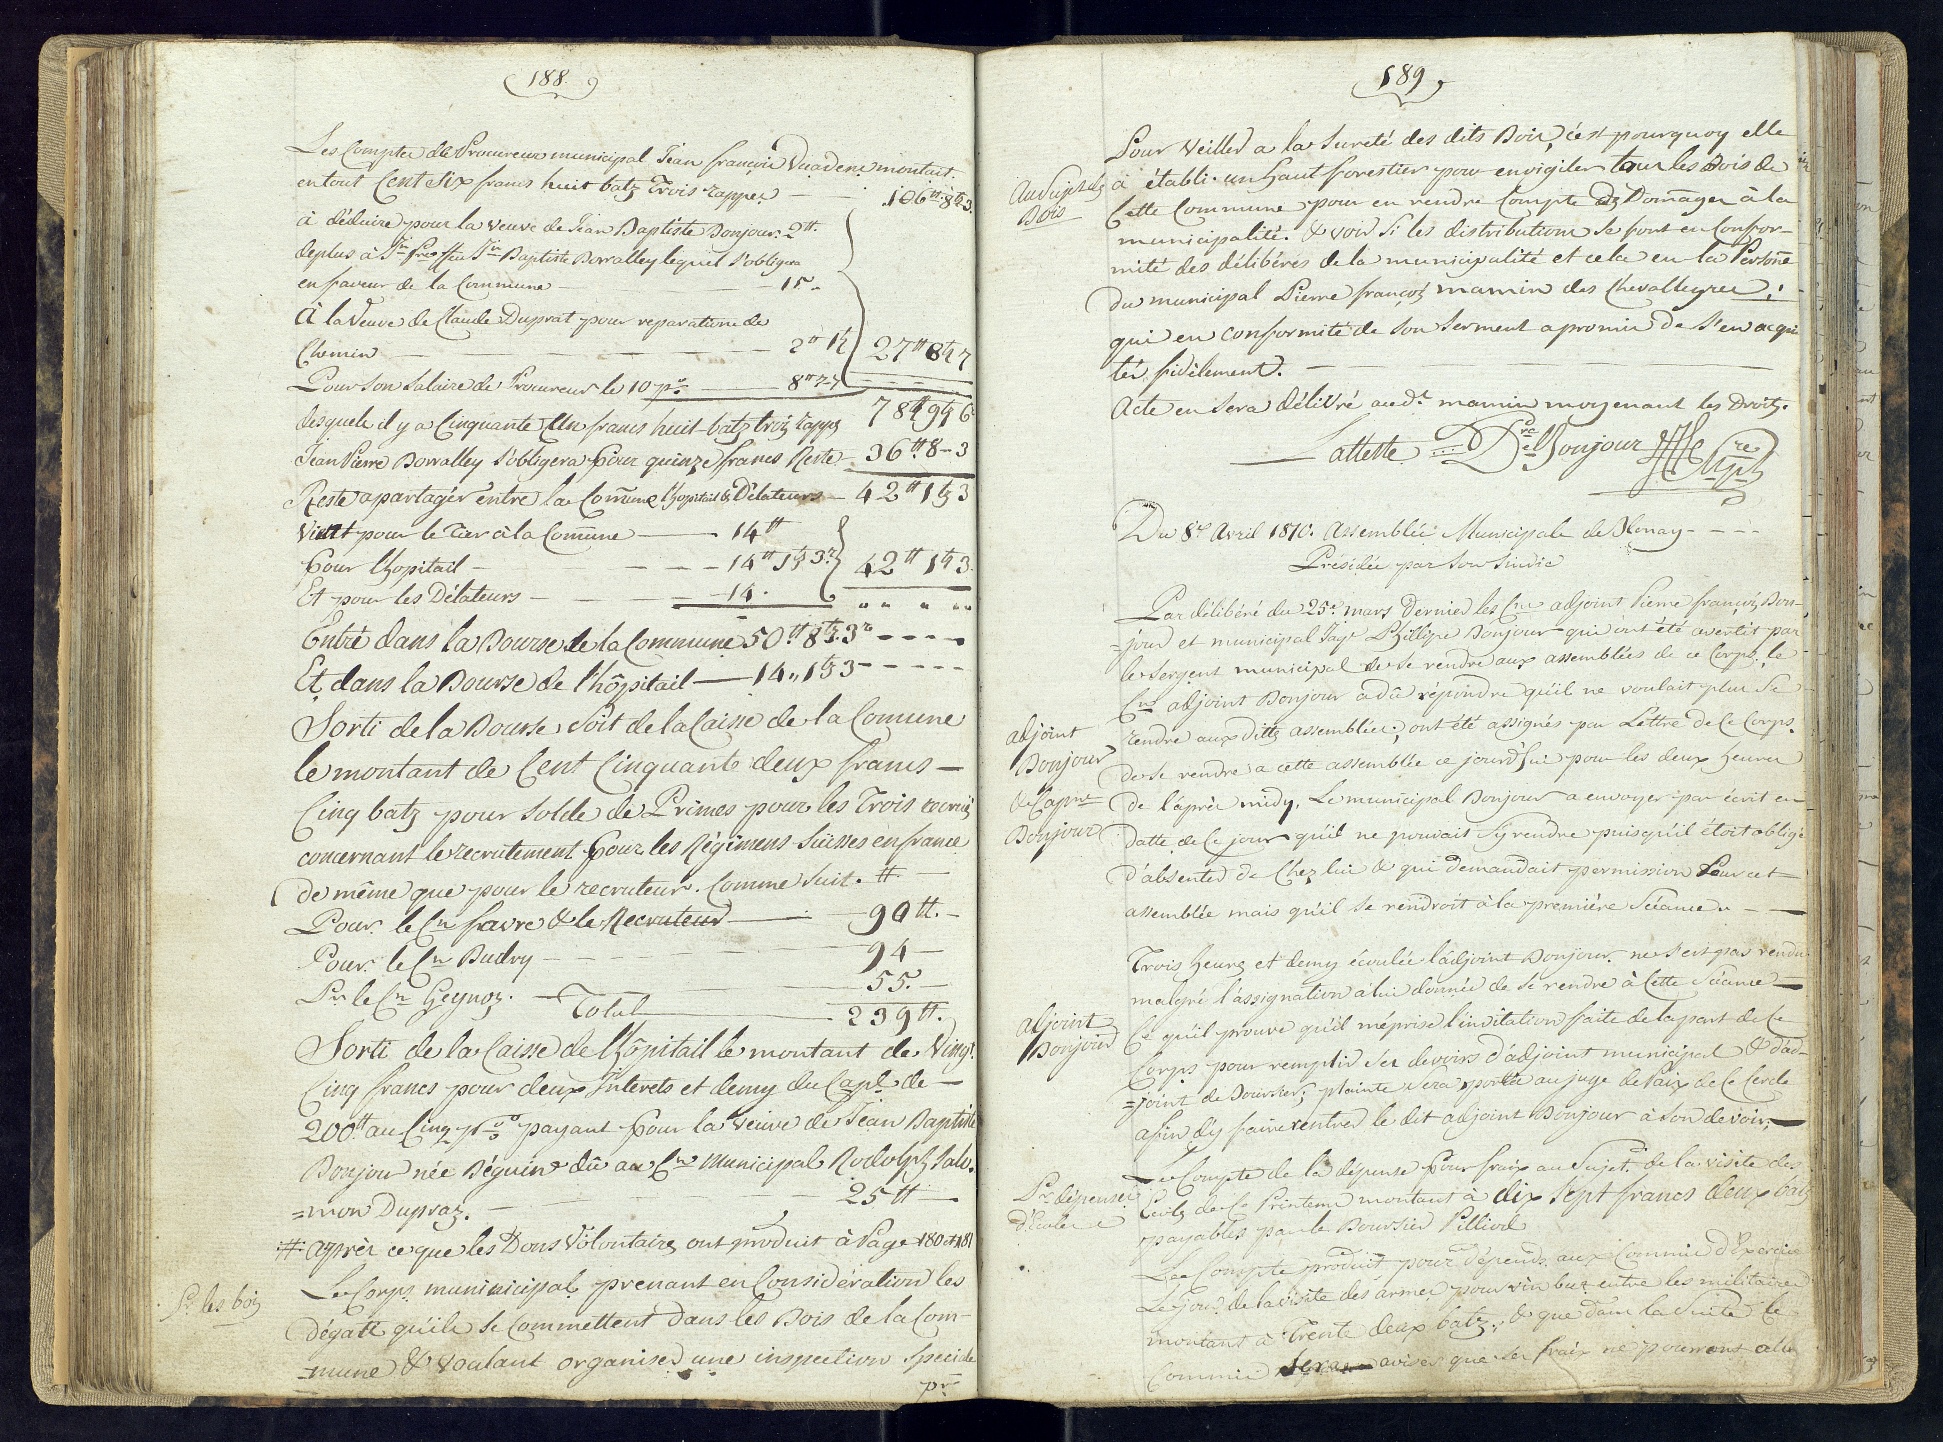 188.
Les Comptes de Procureur municipal Jean françois Vuadens montait.
en tout Cent Six francs huit batz Trois rappes — 106 ₶. 8 ꝑ 3.
à déduire pour la veuve de Jean Baptiste Bonjour. 2 ₶.
de plus à Jn frs ffeu Jn Baptiste Borralley lequel s'obligera
en faveur de la Commune — 15 -
à la Veuve de Claude Duprat pour reparations de
Chemin — 2 ₶ 1 ꝑ 27 ₶ 8 ꝑ 7
Pour son Salaire de Procureur le 10 po. — 8 " 7 - 7
desquels il y a Cinquante Un francs huit batz trois rappes 78 ₶ 9 ꝑ 6
Jean Pierre Borralley s'obligera pour quinze francs Reste — 36 ₶. 8 - 3
Reste a partager entre la Com̃une l'hopitail & Délateurs — 42 ₶ 1 ꝑ 3
Vient pour le Tier à la Com̃une — 14 ₶
pour l'hopitail — 14 ₶ 1 ꝑ 3 r 42 ₶ 1 ꝑ 3.
Et pour les Délateurs — 14.
Entré dans la Bourse de la Commune 50 ₶ 8 ꝑ 3 r - - - -
Et dans la Bourse de l'hôpitail — 14 „ 1 ꝑ 3 - - - - -
Sorti de la Bourse soit de la Caisse de la Comune
le montant de Cent Cinquante deux francs —
Cinq batz pour solde de Primes pour les Trois recrues
concernant le recrutement pour les Régimens Suisses en france
de même que pour le recruteur. Comme suit. # —
Pour. le Cn favre & le Recruteur — 90 ₶. -
Pour. le Cn Budry — 94 —
Pr. le Cn Geynoz. — 55. —
Total — 239 ₶.
Sorti de la Caisse de l'hôpitail le montant de Vingt
Cinq francs pour deux Interets et demy du Capl. de —
200 ₶ au Cinq po payant pour la veuve de Jean Baptiste
Bonjou née Béguin dû au Cn Municipal Rodolph Salo-
=mon Dupraz. — 25 ₶ —
# après ce que les Dons Volontaires ont produit à Page 180 et 181
Pr. les boiz
Le Corps municicipal prenant en Considération les
dégatt qu'ils se Commettent dans les Bois de la Com-
=mune & voulant organiser une inspection speciale
pr.
189
Pour veiller a la Sureté des dits Bois, c'est pourquoy elle
Au Sujet des
Bois
à établi un haut forestier pour envigiler tous les Bois de
Cette Commune pour en rendre Compte des Dom̃ages à la
municipalité. & voir si les distributions se font en Confor-
mité des délibérés de la municipalité et cela en la Persoñe
du municipal Pierre françoy mamin des Chevalleyres ;
qui en conformité de son serment a promis de s'en acqui
ter fidèlement. —
Acte en sera délivré audt mamin moyenant les Droits.
L'atteste D. Bonjour
Du 8e Avril 1810. Assemblée Municipale de Blonay - - - -
Présidée par son Sindic
Par délibéré du 25e. mars Dernier les Cns adjoint Pierre françois Bon-
=jour et municipal Phillipe Bonjour qui ont été avertit par
le sergent municipal de se rendre aux assemblées de ce Corps, le
Cn adjoint Bonjour a dû répondre qu'il ne voulait plus se
adjoint
Bonjour
& Capne
Bonjour
rendre aux dittes assemblées ; ont été assignés par Lettre de Ce Corps
de se rendre a cette assemblée ce jourd'hui pour les deux heures
de l'après midy, Le municipal Bonjour a envoyer par écrit en
datte de Ce jour qu'il ne pouvait s'y rendre puisqu'il étoit obligé
d'absenter de Chez lui & qui demandait permission Pour cet
assemblée mais qu'il se rendroit à la première Séance. — —
Trois heures et demy écoulée l'adjoint Bonjour ne s'est pas rendu
malgré l'assignation à lui donnée de se rendre à Cette Séance —
adjoint
Bonjour
Ce qu'il prouve qu'il méprise l'invitation faite de la part de Ce
Corps pour remplir ses devoirs d'adjoint municipal & d'ad-
=joint de Boursier ; plainte sera portée au juge de Paix de Ce Cercle
afin d'y faire rentrer le dit adjoint Bonjour à son devoir, —
Pr. dépenses
Le Compte de la dépense pour fraix au Sujet de la visite des
de Ce Printems montant à dix Sept francs deux batz
payables par le Boursier Pilliod
Le Compte produit pour dépends aux Commis d'Exercice
Le jour de la visite des armes pour vin bu entre les militaires
montant à Trente deux batz, & que dans la Suite le
Commis avisés que ses fraix ne pourront